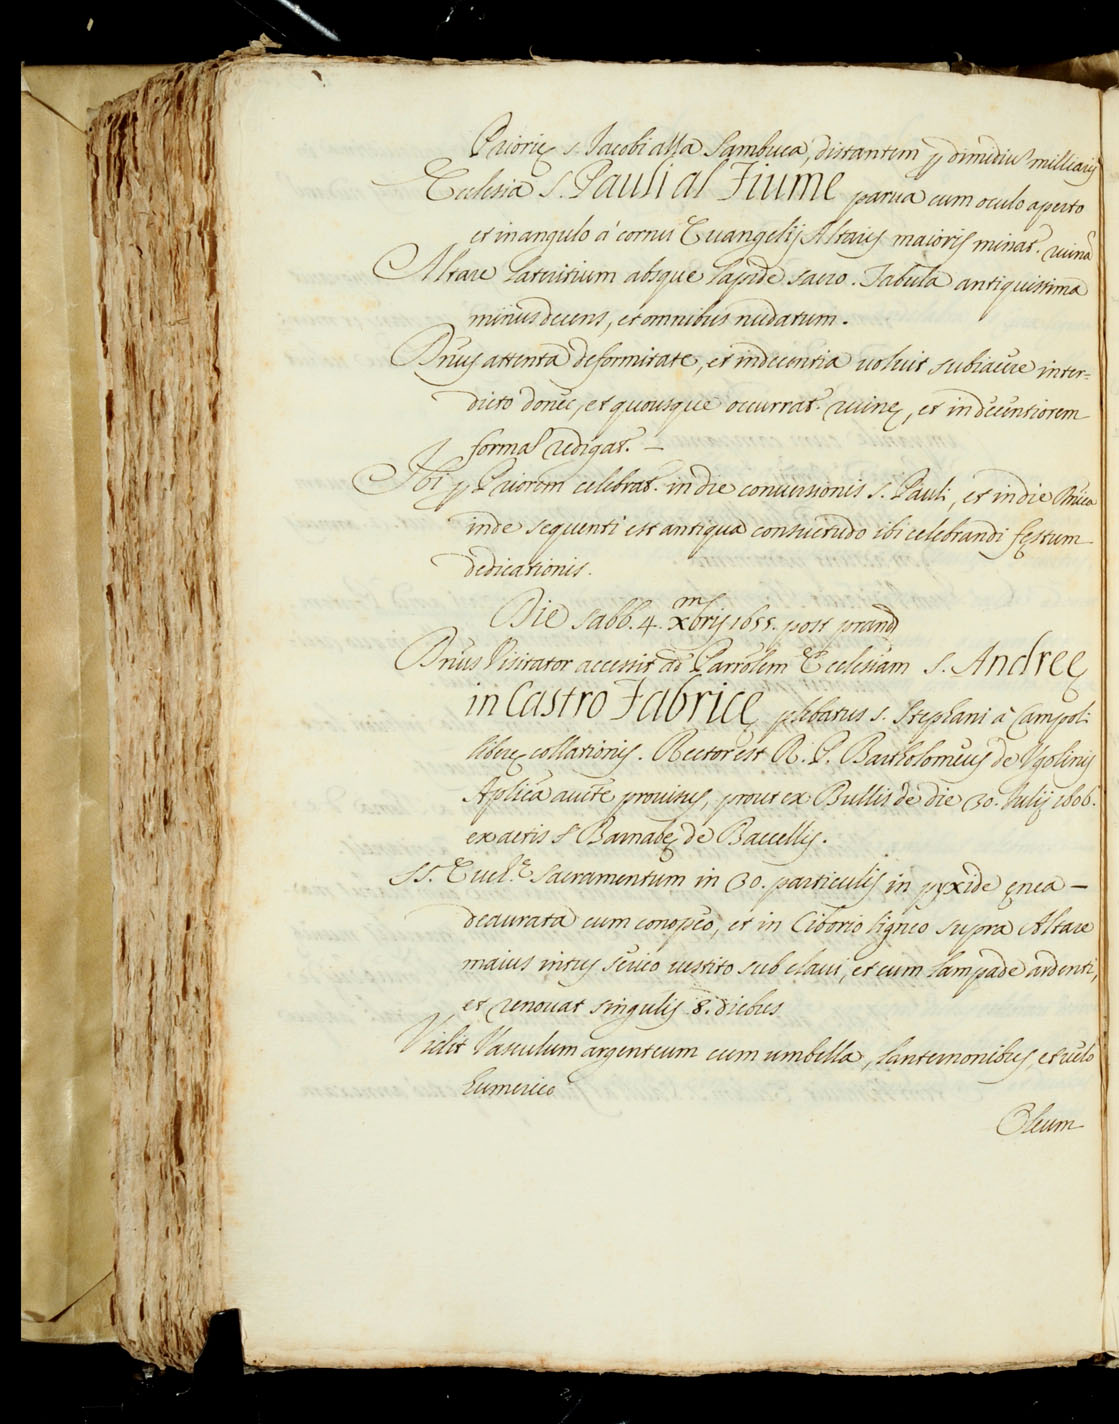 Priorię S. Jacobi alla Sambuca, distantem p dimidiũ milliarij
Ecclesia S. Pauli al Fiume parua cum oculo aperto
et in angulo à cornu Euangelij Altaris maioris minat. ruinã
Altare lateritium absque lapide sacro. Tabula antiquissima
minus decens, et omnibus nudatum.
Dñus attenta deformitate, et indecentia uoluit subiacere inter=
dicto donec, et quousque occurrat. ruinę, et in decentiorem
formã redigat. —
Ibi p Priorem celebrat. in die conuersionis S. Pauli, et in die Dñica
inde sequenti est antiqua consuetudo ibi celebrandi festum
dedicationis.
Die sabb. 4. mẽ xbris 1655. post prand
Dñus Visitator accessit ad Parrõlem Ecclesiam S. Andreę
in Castro Fabricę plebatus S. Stephani à Campoli
liberę collationis. Rector est R. P. Bartholomeus de Vgolinis
Aplica aucte prouisus, prout ex Bullis de die 30. Iulij 1606.
ex actis sr Barnabę de Baccellis.
SS. Euch.ę Sacramentum in 30. particulis in pyxide ęnea —
deaurata cum conopeo, et in Ciborio ligneo supra Altare
maius intus serico uestito sub claui, et cum lampade ardenti,
et renouat singulis 8. diebus
Vidit Vasculum argenteum cum umbella, lanternonibus, et uelo
humerico
Oleum